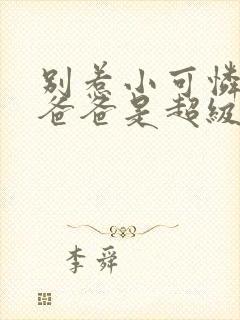 别惹小可憐
爸爸是超級
李舜